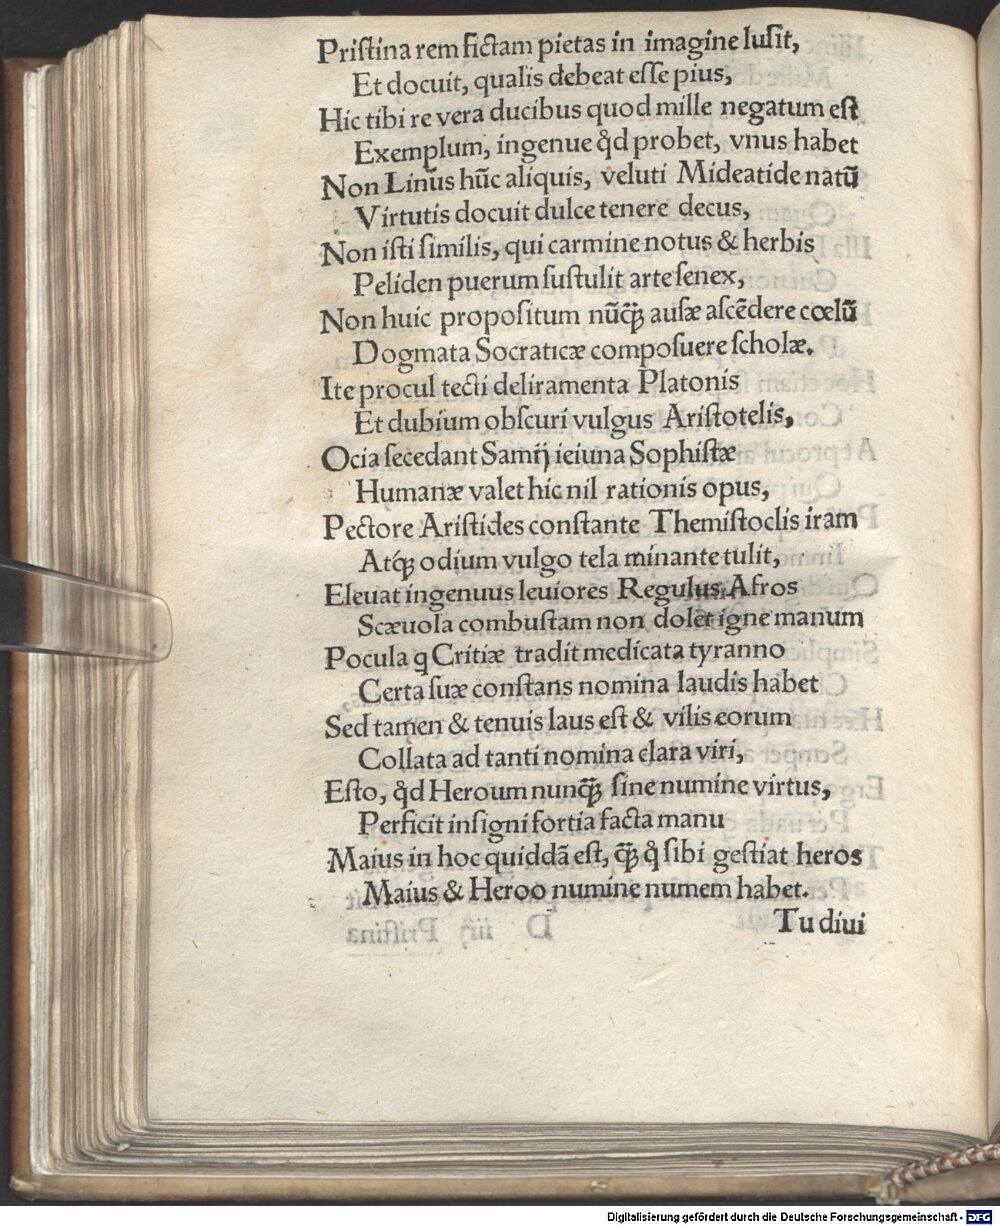 Priſtina rem fictam pietas in imagine luſit,
Et docuit, qualis debeat eſſe pius,
Hic tibi re vera ducibus quod mille negatum eſt
Exemplum, ingenue q̊d probet, vnus habet
Non Linus hūc aliquis, veluti Mideatide natū
Virtutis docuit dulce tenere decus,
Non iſti ſimilis, qui carmine notus & herbis
Peliden puerum ſuſtulit arte ſenex,
Non huic propoſitum nūq̃ꝫ auſæ aſcēdere cœlū
Dogmata Socraticæ compoſuere ſcholæ.
Ite procul tecti deliramenta Platonis
Et dubium obſcuri vulgus Ariſtotelis,
Ocia ſecedant Samij ieiuna Sophiſtæ
Humanæ valet hic nil rationis opus,
Pectore Ariſtides conſtante Themiſtoclis iram
Atqꝫ odium vulgo tela minante tulit,
Eleuat ingenuus leuiores Regulus Afros
Scæuola combuſtam non dolet igne manum
Pocula q Critiæ tradit medicata tyranno
Certa ſuæ conſtans nomina laudis habet
Sed tamen & tenuis laus eſt & vilis eorum
Collata ad tanti nomina clara viri,
Eſto, q̊d Heroum nunq̃ꝫ ſine numine virtus,
Perficit inſigni fortia facta manu
Maius in hoc quiddā eſt, q̃ꝫ q̊ ſibi geſtiat heros
Maius & Heroo numine numem habet.
Tu diui
Digitalisierung gefördert durch die Deutsche Forschungsgemeinschaft - DFG